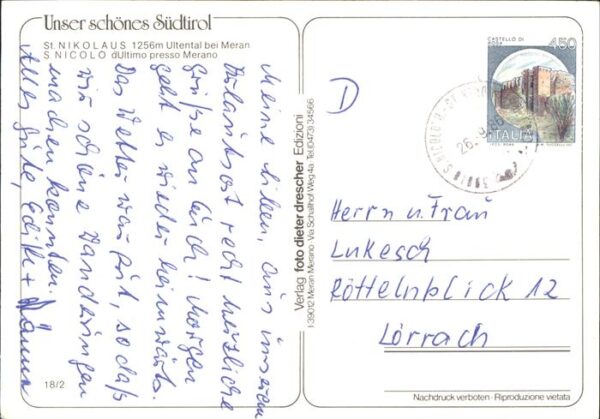 Unser schönes Südtirol
St. NIKOLAUS 1256m Ultental bei Meran
S. NICOLO d'Ultimo presso Merano
Meine Lieben, aus unserem
Urlaubsort recht herzliche
Grüße an Euch! Morgen
geht es wieder heimwärts.
Das Wetter war gut, sodaß
wir schöne Wanderungen
machen konnten.
Alles Gute, Edith +
18/2
Verlag foto dieter drescher Edizioni
I-39012 Meran Merano · Via Schafhof Weg 4a · Tel. (0473) 34566
D
CASTELLO DI
450
ITALIA
S. NICOLO
26.9.
Herrn u. Frau
Lukesch
Röttelnblick 12
Lörrach
Nachdruck verboten · Riproduzione vietata